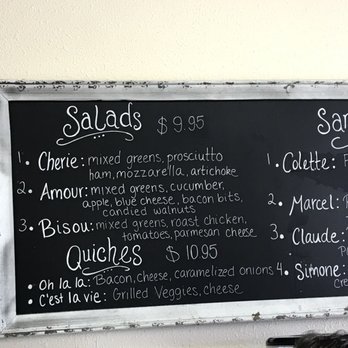 Salads $9.95
1. • Cherie: mixed greens, prosciutto
ham, mozzarella, artichoke
2. • Amour: mixed greens, cucumber,
apple, blue cheese, bacon bits,
candied walnuts
3. • Bisou: mixed greens, roast chicken,
tomatoes, parmesan cheese
Quiches $10.95
• Oh la la: Bacon, cheese, caramelized onions
• C'est la vie: Grilled Veggies, cheese
San
1. • Colette:
2. • Marcel:
3. • Claude:
4. • Simone:
Cre